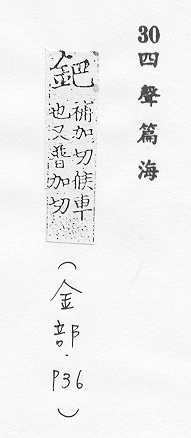 30四聲篇海
鈀
補加切候車
也又普加切
（金部．P36）